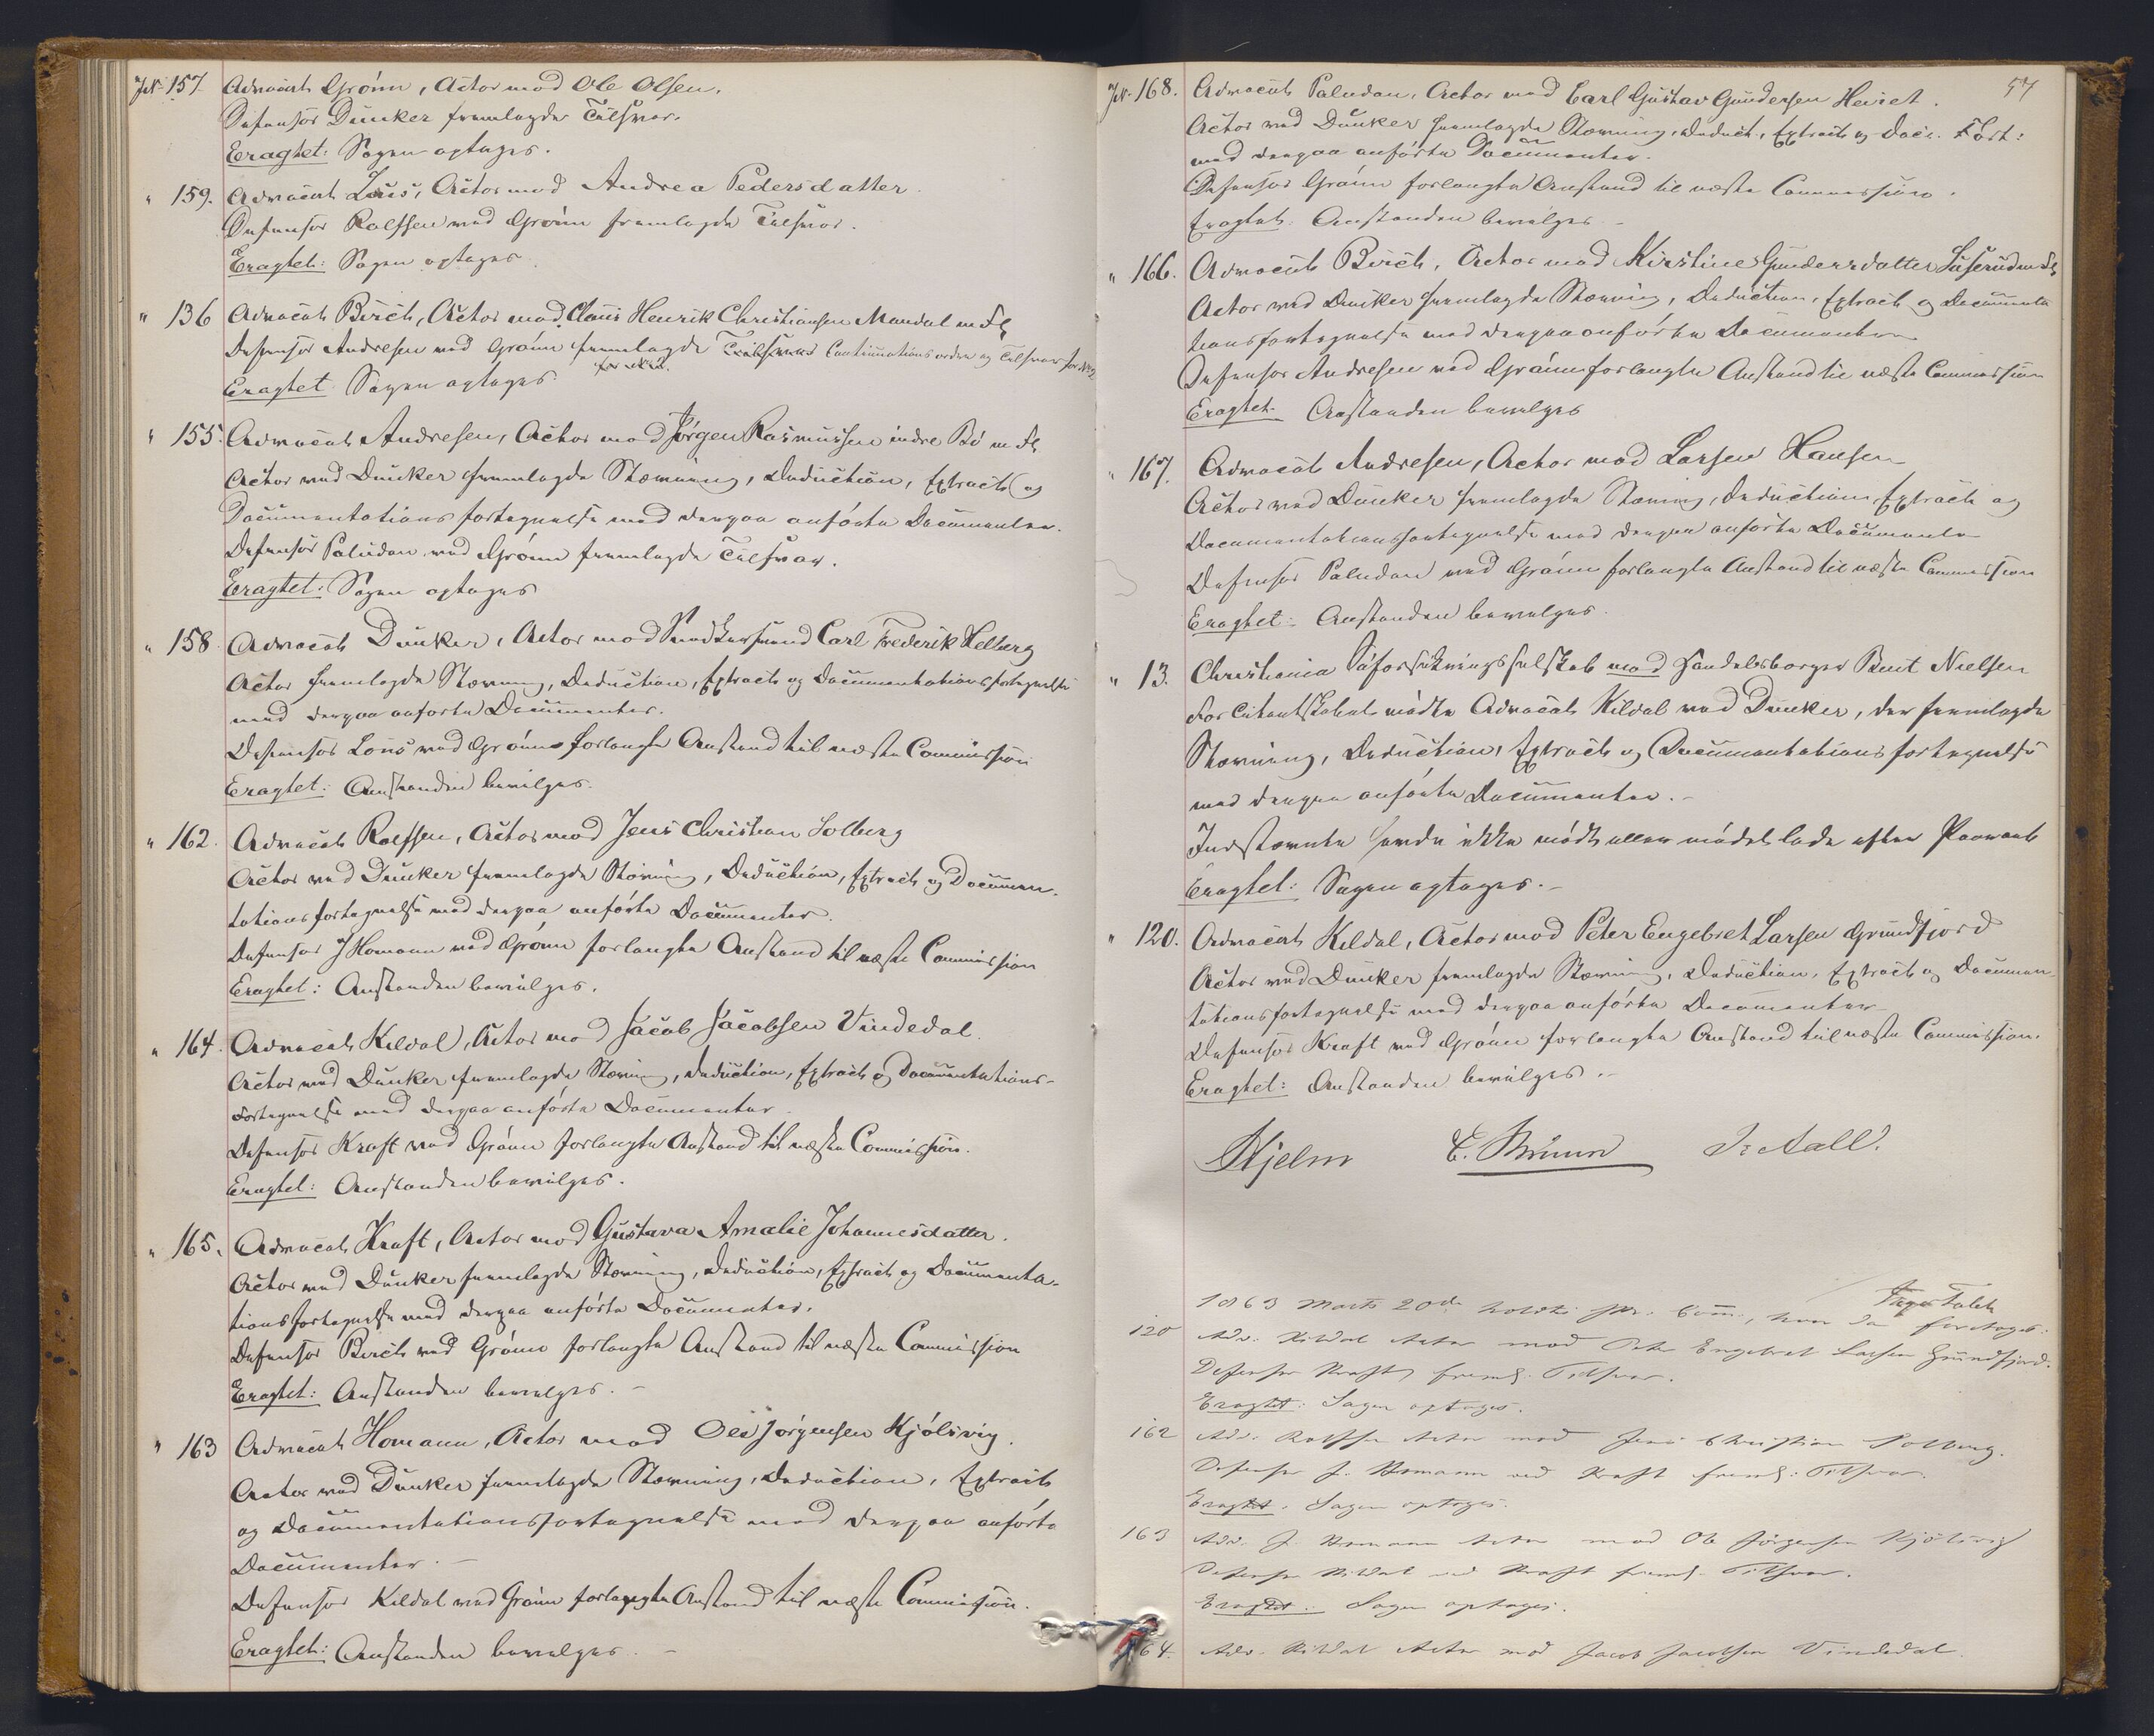 № 157 Advocat Grönn, Actor mod Ole Olsen.
Defensor Dunker fremlagde Tilsvar.
Eragtet: Sagen optages.
" 159. Advocat Lous, Actor mod Andrea Pedersdatter.
Defensor Rolfsen ved Grönn fremlagde Tilsvar.
Eragtet: Sagen optages
" 136 Advocat Birch, Actor mod Claus Henrik Christiansen Mandal m Fl
Defensor Andresen ved Grönn fremlagde Continuationsordre og Tilsvar for № 2
Eragtet Sagen optages
" 155. Advocat Andresen, Actor mod Jörgen Rasmussen indre Bö m Fl
Actor ved Dunker fremlagde Stævning, Deduction, Extract og
Documentationsfortegnelse med derpaa anförte Documenter.
Defensor Paludan ved Grönn fremlagde Tilsvar.
Eragtet: Sagen optages
" 158 Advocat Dunker, Actor mod Snedkersvend Carl Frederik Helberg
Actor fremlagde Stævning, Deduction, Extract og Documentationsfortegnelse
med derpaa anförte Documenter.
Defensor Lous ved Grönn forlangte Anstand til næste Commission
Eragtet: Anstanden bevilges.
" 162. Advocat Rolfsen, Actor mod Jens Christian Solberg
Actor ved Dunker fremlagde Stævning, Deduction, Extract og Documen-
tationsfortegnelse med derpaa anförte Documenter.
Defensor J Homann ved Grönn forlangte Anstand til næste Commission
Eragtet: Anstanden bevilges.
" 164. Advocat Kildal, Actor mod Jacob Jacobsen Vindedal.
Actor ved Dunker fremlagde Stævning, Deduction, Extract og Documentations-
fortegnelse med derpaa anförte Documenter.
Defensor Kraft ved Grönn forlangte Anstand til næste Commission.
Eragtet: Anstanden bevilges.
" 165. Advocat Kraft, Actor mod Gustava Amalie Johannesdatter.
Actor ved Dunker fremlagde Stævning, Deduction, Extract og Documenta-
tionsfortegnelse med derpaa anförte Documenter.
Defensor Birch ved Grönn forlangte Anstand til næste Commission
Eragtet: Anstanden bevilges. -
" 163 Advocat Homann, Actor mod Ole Jörgensen Kjölsvig.
Actor ved Dunker fremlagde Stævning, Deduction, Extract
og Documentationsfortegnelse med derpaa anförte
Documenter. -
Defensor Kildal ved Grönn forlangte Anstand til næste Commission.
Eragtet: Anstanden bevilges. -
57
№ 168. Advocat Paludan, Actor mod Carl Gustav Gundersen
Actor ved Dunker fremlagde Stævning, Deduct., Extract og Doc. Fort:
med derpaa anförte Documenter.
Defensor Grönn forlangte Anstand til næste Commission.
Eragtet: Anstanden bevilges -
" 166. Advocat Birch, Actor mod Kirstine Gundersdatter m Fl
Actor ved Dunker fremlagde Stævning, Deduction, Extract og Documenta
tionsfortegnelse med derpaa anförte Documenter
Defensor Andresen ved Grönn forlangte Anstand til næste Commission
Eragtet. Anstanden bevilges
" 167. Advocat Andresen, Actor mod Larsen Hansen
Actor ved Dunker fremlagde Stævning, Deduction, Extract og
Documentationsfortegnelse med derpaa anförte Documenter
Defensor Paludan ved Grönn forlangte Anstand til næste Commission
Eragtet: Anstanden bevilges.
" 13. Christiania Söforsikringsselskab mod Handelsborger Bent Nielsen
For Citantskabet mödte Advocat Kildal ved Dunker, der fremlagde
Stævning, Deduction, Extract og Documentationsfortegnelse
med derpaa anförte Documenter. -
Indstævnte havde ikke mödt eller mödet lade efter Paaraab
Eragtet: Sagen optages. -
" 120. Advocat Kildal, Actor mod Peter Engebret Larsen Grundfjord
Actor ved Dunker fremlagde Stævning, Deduction, Extract og Documen
tationsfortegnelse med derpaa anförte Documenter
Defensor Kraft ved Grönn forlangte Anstand til næste Commission.
Eragtet: Anstanden bevilges. -
Hjelm E. Aall.
1863 Marts 20de holdtes Com:, hvor da foretoges:
120 Adv. Kildal Actor mod Peter Engebret Larsen Grundfjord.
Defensor Kraft freml: Tilsvar.
Eragtet: Sagen optages.
162 Adv. Rolfsen Actor mod Jens Christian Solberg.
Defensor J. Homann ved Kraft freml: Tilsvar.
Eragtet. Sagen optages.
163 Adv. J. Homann Actor mod Ole Jörgensen Kjölsvig
Defensor Kildal ved Kraft freml. Tilsvar.
Eragtet: Sagen optages.
164. Adv. Kildal Actor mod Jacob Jacobsen Vindedal.